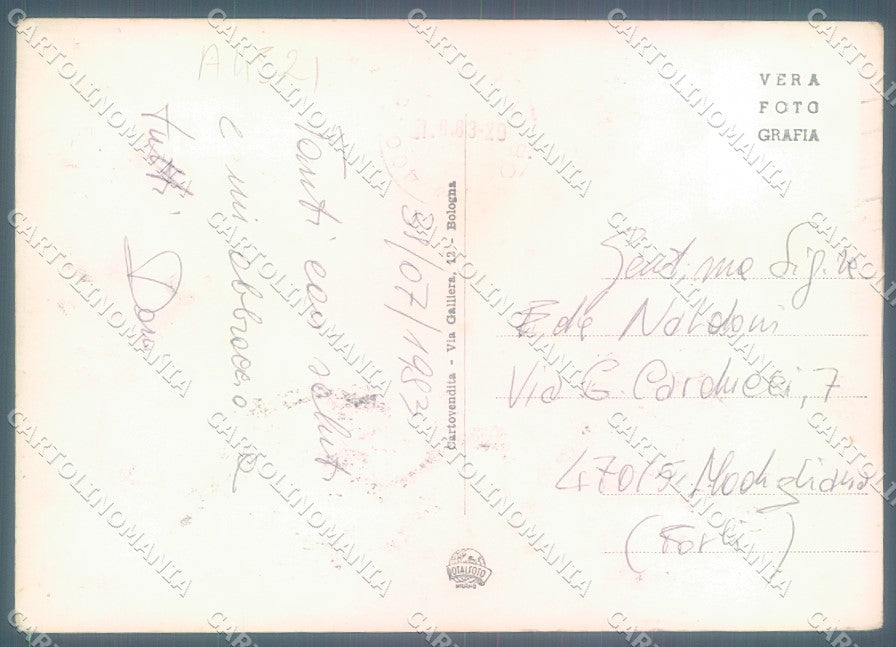 A 4521
31/07/1983
Tanti cari saluti
e un abbraccio a
Tutti
Dora
Cartovendita - Via Galliera, 12 - Bologna
ROTALFOTO
MILANO
VERA
FOTO
GRAFIA
Gent.ma Sig.ra
Eda Nardoni
Via G. Carducci, 7
47015 Modigliana
(Forlì)
CARTOLINOMANIA